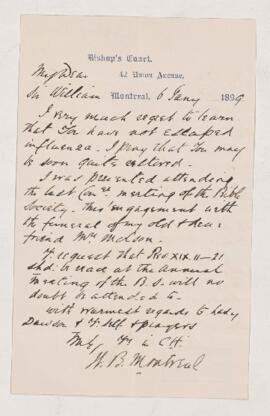 Bishop's Court,
42 Union Avenue,
My Dear
Sir William Montreal, 6 Jany 1899
I very much regret to learn
that You have not escaped
influenza. I pray that You may
be soon quite restored.
I was prevented attending
the last Com:ee meeting of the Bible
Society. This engagement with
the funeral of my old & dear
friend Mrs
Yr request that Rev XIX. 11-21
shd: be read at the annual
meeting of the B.S. will no
doubt be attended to.
With warmest regards to Lady
Dawson & Yr self & prayers
Yrs in Ch:
W. B. Montreal